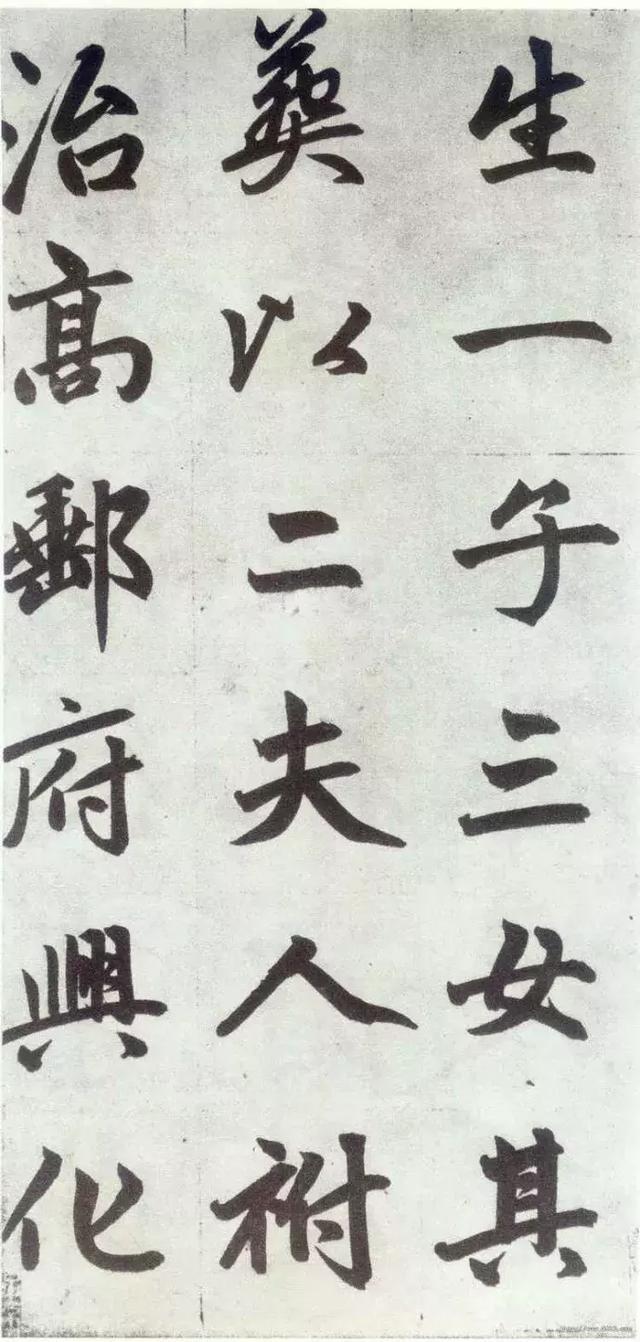 生一子三女其
葬以二夫人祔
治高郵府興化